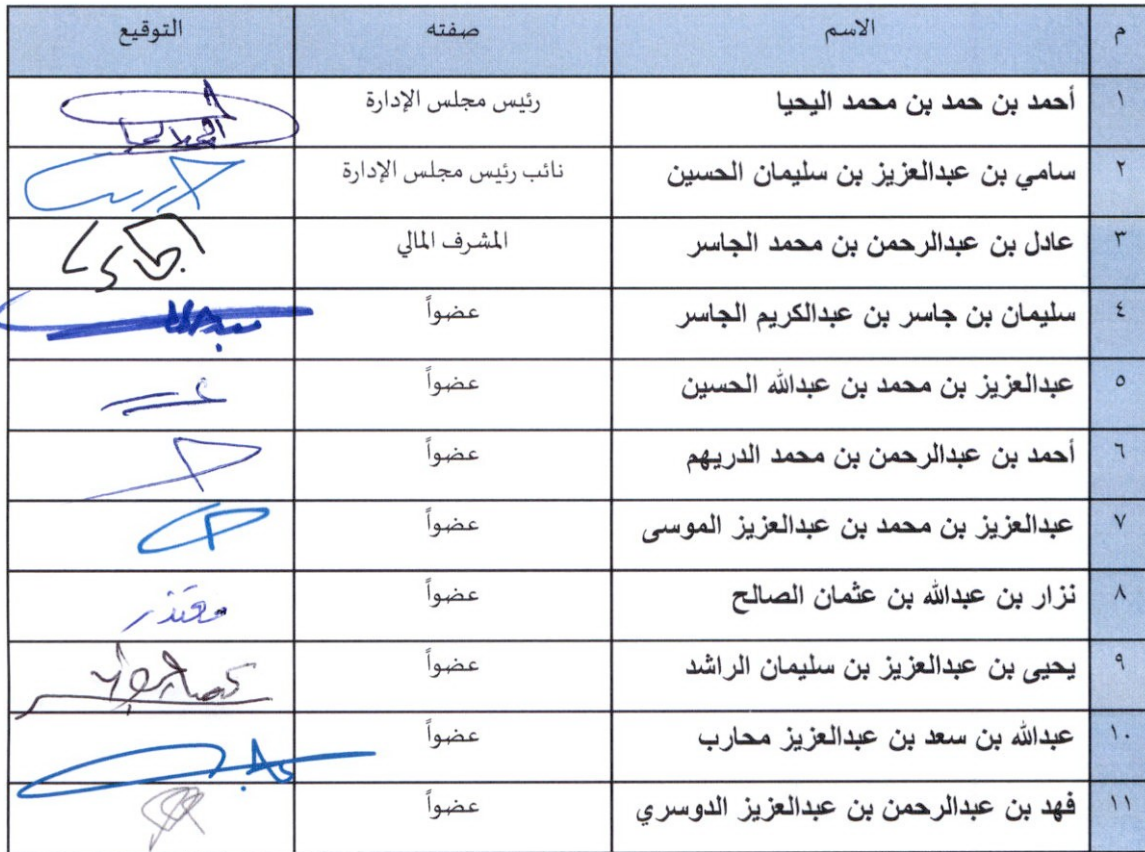 م الاسم صفته التوقيع
١ أحمد بن حمد بن محمد اليحيا رئيس مجلس الإدارة
٢ سامي بن عبدالعزيز بن سليمان الحسين نائب رئيس مجلس الإدارة
٣ عادل بن عبدالرحمن بن محمد الجاسر المشرف المالي
٤ سليمان بن جاسر بن عبدالكريم الجاسر عضواً
٥ عبدالعزيز بن محمد بن عبدالله الحسين عضواً
٦ أحمد بن عبدالرحمن بن محمد الدريهم عضواً
٧ عبدالعزيز بن محمد بن عبدالعزيز الموسى عضواً
٨ نزار بن عبدالله بن عثمان الصالح عضواً معتذر
٩ يحيى بن عبدالعزيز بن سليمان الراشد عضواً
١٠ عبدالله بن سعد بن عبدالعزيز محارب عضواً
١١ فهد بن عبدالرحمن بن عبدالعزيز الدوسري عضواً